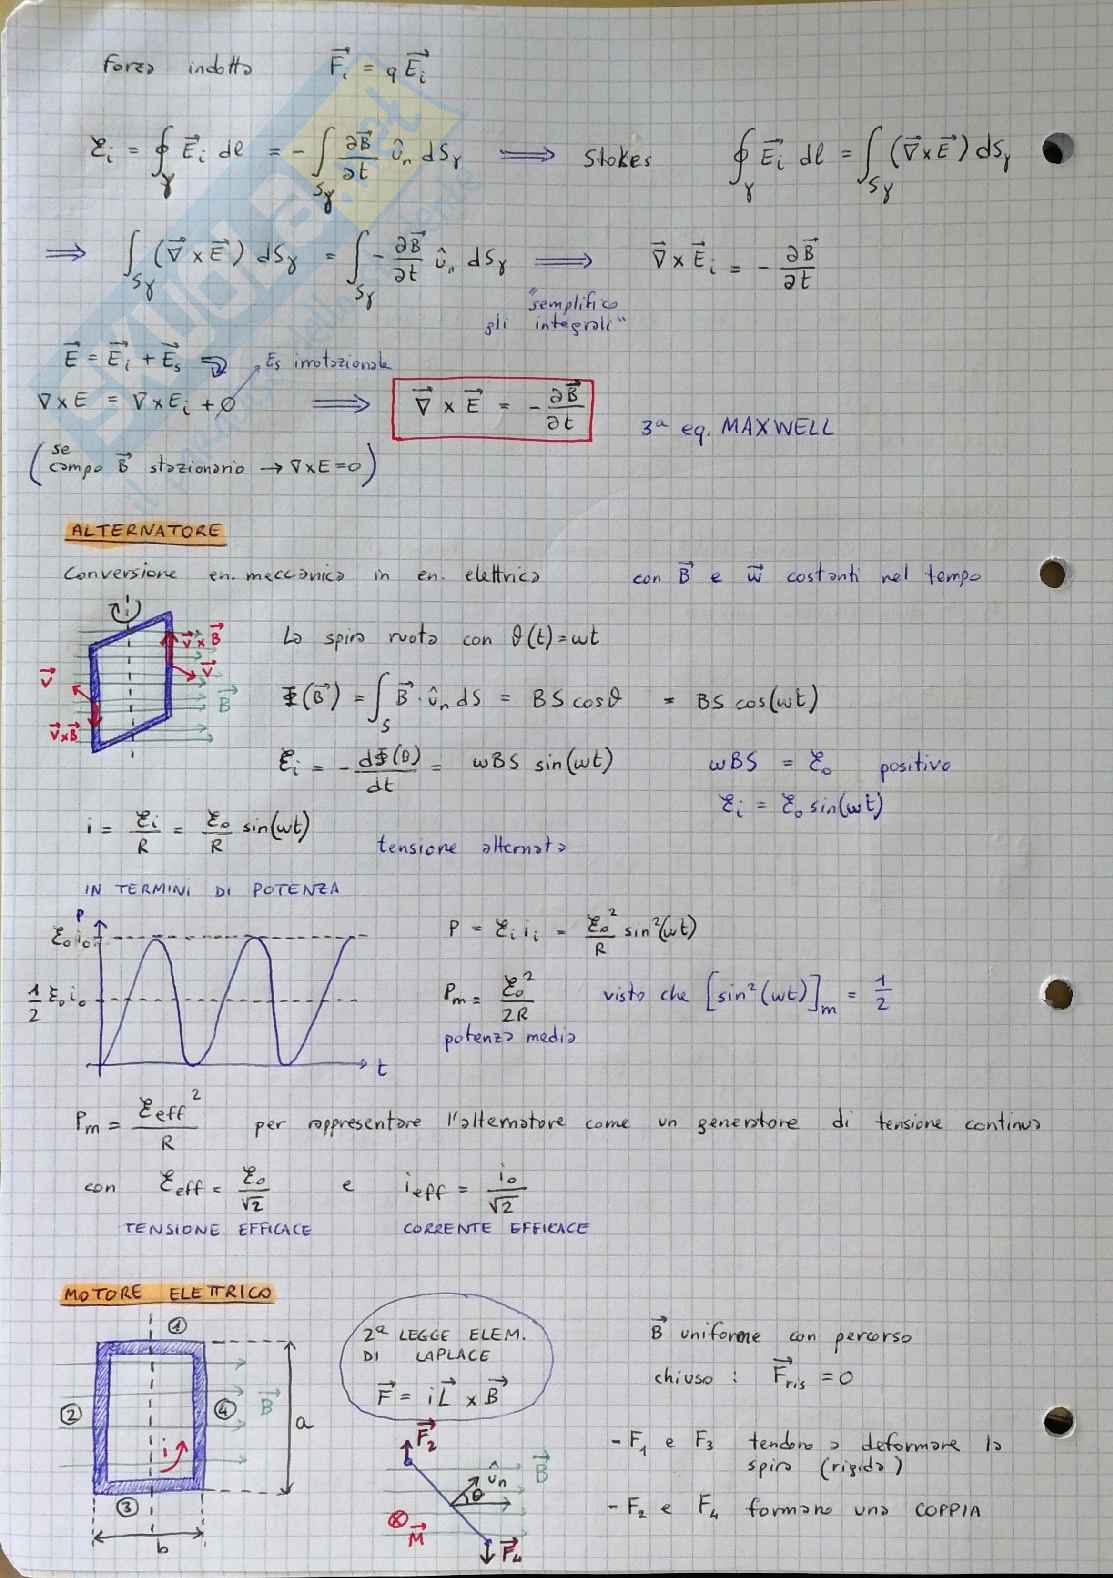 Forza indotta F⃗i = q E⃗i
Ɛi = ∮γ E⃗i dl = - ∫Sγ ∂B⃗/∂t ûn dSγ ⟹ Stokes ∮γ E⃗i dl = ∫Sγ (∇⃗ x E⃗) dSγ
⟹ ∫Sγ (∇⃗ x E⃗) dSγ = ∫Sγ - ∂B⃗/∂t ûn dSγ ⟹ ∇⃗ x E⃗i = - ∂B⃗/∂t
"semplifico
gli integrali"
E⃗ = E⃗i + E⃗s Es irrotazionale
∇ x E = ∇ x Ei + 0 ⟹ ∇⃗ x E⃗ = - ∂B⃗/∂t 3ª eq. MAXWELL
(se campo B⃗ stazionario → ∇ x E = 0)
ALTERNATORE
Conversione en. meccanica in en. elettrica con B⃗ e ω⃗ costanti nel tempo
v⃗ x B⃗
v⃗
v⃗
B⃗
v⃗ x B⃗
La spira ruota con θ(t) = ωt
Φ(B⃗) = ∫S B⃗ · ûn dS = BS cosθ = BS cos(ωt)
Ɛi = - dΦ(θ)/dt = ωBS sin(ωt) ωBS = Ɛ0 positivo
Ɛi = Ɛ0 sin(ωt)
i = Ɛi/R = Ɛ0/R sin(ωt) tensione alternata
IN TERMINI DI POTENZA
P
Ɛ0 i0
1/2 Ɛ0 i0
t
P = Ɛi ii = Ɛ0²/R sin²(ωt)
Pm = Ɛ0²/2R visto che [sin²(ωt)]m = 1/2
potenza media
Pm = Ɛeff²/R per rappresentare l'alternatore come un generatore di tensione continua
con Ɛeff = Ɛ0/√2 e ieff = i0/√2
TENSIONE EFFICACE CORRENTE EFFICACE
MOTORE ELETTRICO
① ② ③ ④
B⃗
i
a
b
2ª LEGGE ELEM.
DI LAPLACE
F⃗ = i L⃗ x B⃗
F⃗2
B⃗
ûn
θ
M⃗
F⃗4
B⃗ uniforme con percorso
chiuso : F⃗ris = 0
- F1 e F3 tendono a deformare la
spira (rigida)
- F2 e F4 formano una COPPIA
SKUOLA.net